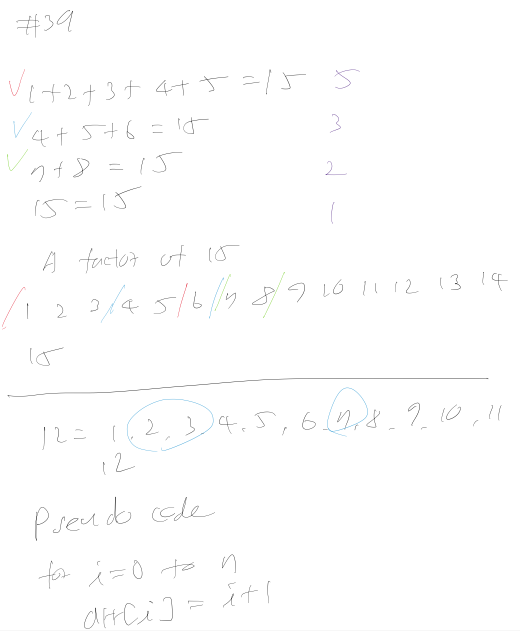 #39
1+2+3+4+5=15 5
4+5+6=15 3
7+8=15 2
15=15 1
A factor of 15
1 2 3 4 5 6 7 8 9 10 11 12 13 14
15
12= 1, 2, 3, 4, 5, 6, 7, 8, 9, 10, 11
, 12
Pseudo code
for i=0 to n
arr[i] = i+1